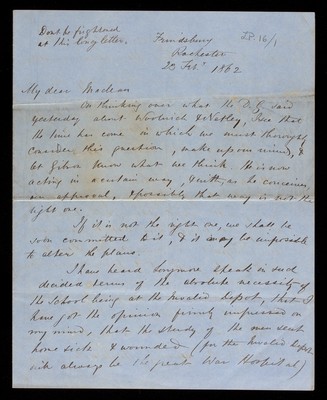 Don't be frightened
at this long letter.
J.P. 16/1
Frindsbury
Rochester
23 Feb. 1862
My dear Maclean
On thinking over what the D.G. said
yesterday about Woolwich & Netley, I see that
the time has come in which we must thoroughly
consider this question, make up our mind, &
let Gibson know what we think. He is now
acting in a certain way, & with, as he conceives,
our approval, & possibly that way is not the
right one.
If it is not the right one, we shall be
soon committed to it, & it may be impossible
to alter the plans.
I have heard Longmore speak in such
decided terms of the absolute necessity of
the School being at the Invalid Depot, that I
have got the opinion firmly impressed on
my mind, that the study of the men sent
home sick & wounded (for the Invalid Depot
will always be the great War Hospital)